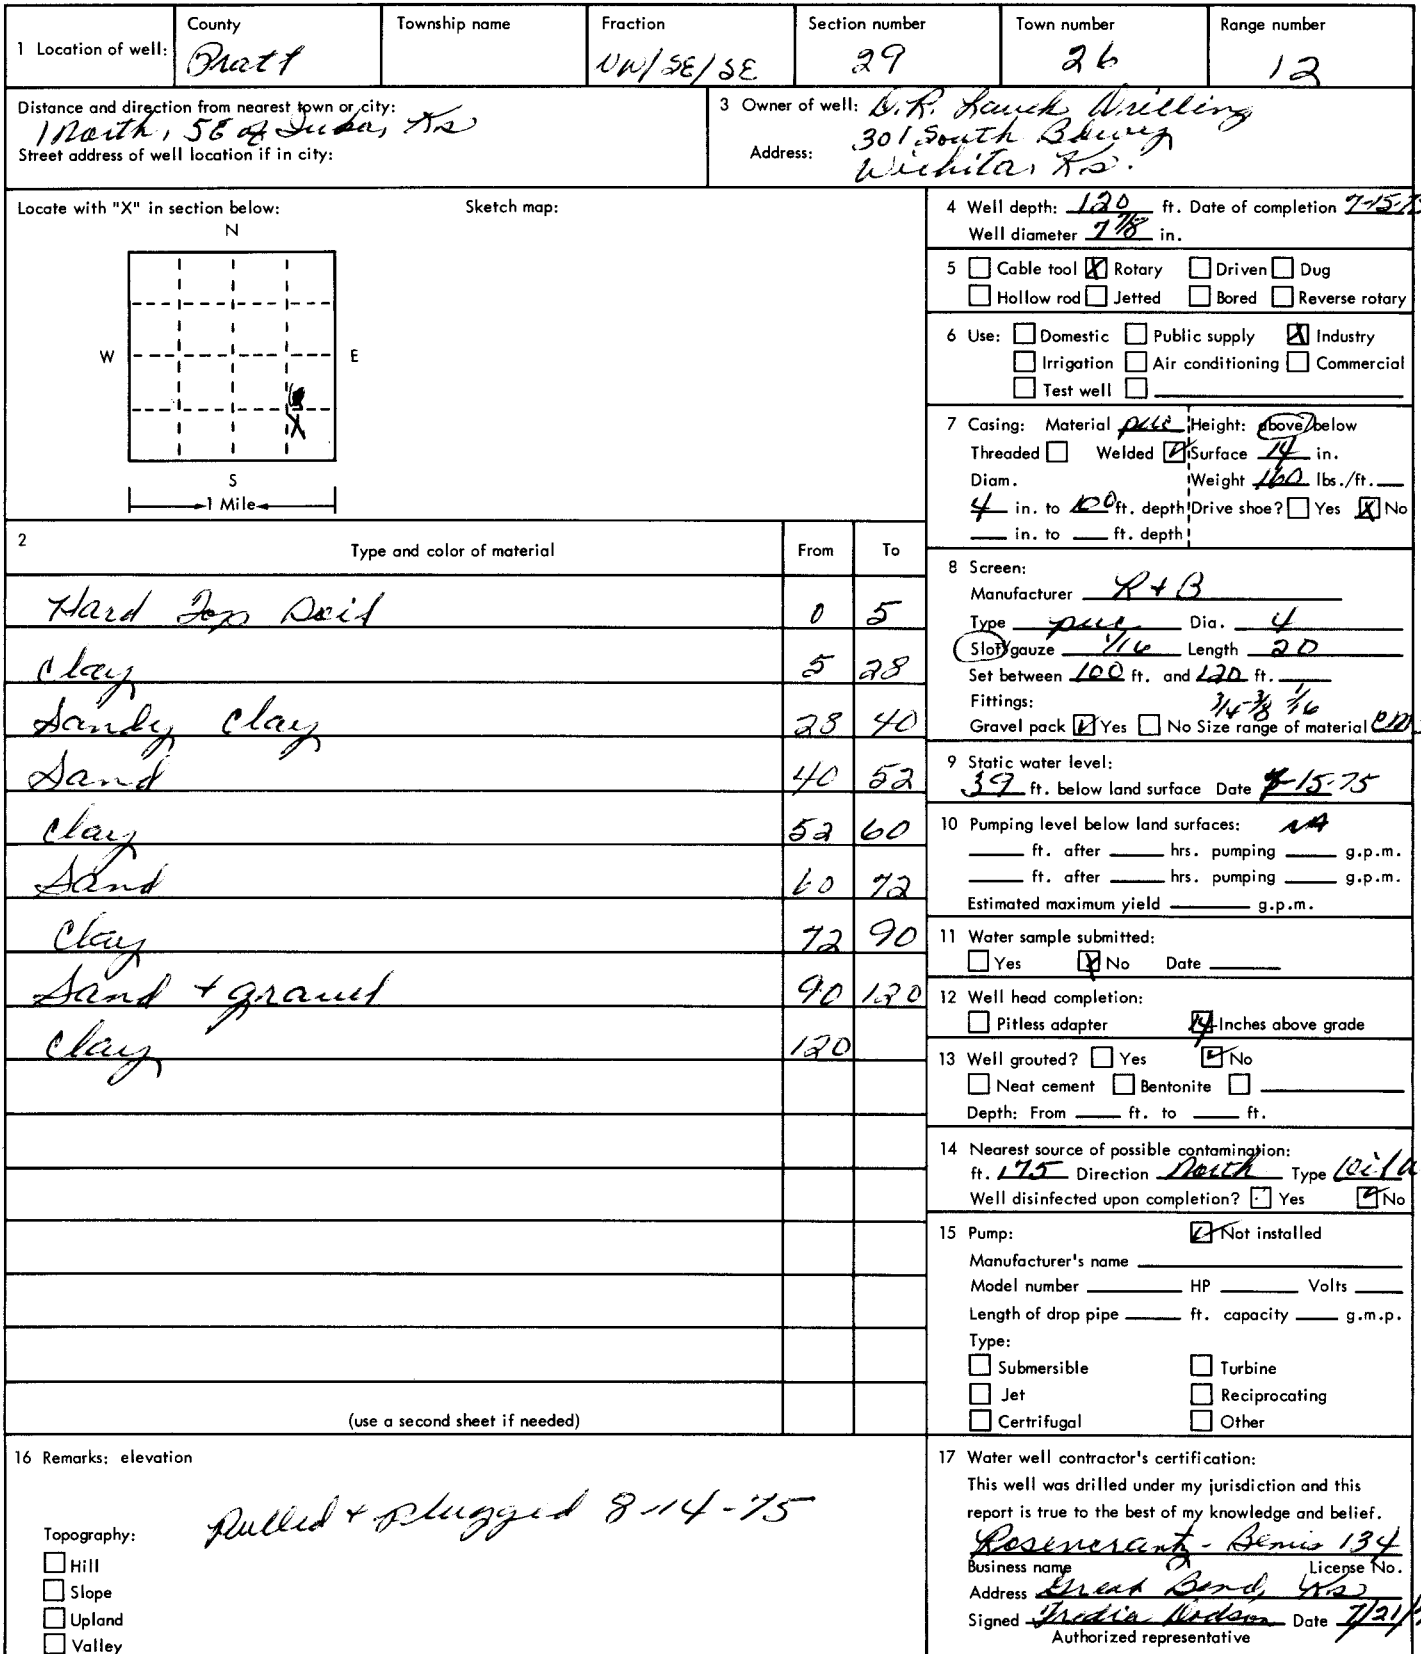 1 Location of well:
County
Pratt
Township name
Fraction
NW/SE/SE
Section number
29
Town number
26
Range number
12
Distance and direction from nearest town or city:
1 North, 5E of Iuka, Ks
Street address of well location if in city:
3 Owner of well: D.R. Lauck Drilling
Address: 301 South Bdwy
Wichita, Ks.
Locate with "X" in section below:
Sketch map:
N
W
E
X
S
1 Mile
4 Well depth: 120 ft. Date of completion 7-15-75
Well diameter 7 7/8 in.
5 Cable tool X Rotary Driven Dug
Hollow rod Jetted Bored Reverse rotary
6 Use: Domestic Public supply X Industry
Irrigation Air conditioning Commercial
Test well
7 Casing: Material pvc Height: above/below
Threaded Welded Surface 14 in.
Diam. Weight 160 lbs./ft.
4 in. to 100 ft. depth Drive shoe? Yes X No
in. to ft. depth
2
Type and color of material From To
Hard Top Soil 0 5
Clay 5 28
Sandy Clay 28 40
Sand 40 52
Clay 52 60
Sand 60 72
Clay 72 90
Sand + gravel 90 120
Clay 120
(use a second sheet if needed)
8 Screen:
Manufacturer R + B
Type pvc Dia. 4
Slot/gauze 1/16 Length 20
Set between 100 ft. and 120 ft.
Fittings:
3/4-3/8 1/16
Gravel pack Yes No Size range of material
9 Static water level:
39 ft. below land surface Date 7-15-75
10 Pumping level below land surfaces: NA
ft. after hrs. pumping g.p.m.
ft. after hrs. pumping g.p.m.
Estimated maximum yield g.p.m.
11 Water sample submitted:
Yes X No Date
12 Well head completion:
Pitless adapter 14 Inches above grade
13 Well grouted? Yes No
Neat cement Bentonite
Depth: From ft. to ft.
14 Nearest source of possible contamination:
ft. 175 Direction North Type Oil
Well disinfected upon completion? Yes No
15 Pump: Not installed
Manufacturer's name
Model number HP Volts
Length of drop pipe ft. capacity g.m.p.
Type:
Submersible Turbine
Jet Reciprocating
Certrifugal Other
16 Remarks: elevation
Pulled + plugged 8-14-75
Topography:
Hill
Slope
Upland
Valley
17 Water well contractor's certification:
This well was drilled under my jurisdiction and this
report is true to the best of my knowledge and belief.
Rosencrantz-Bemis 134
Business name License No.
Address Great Bend, Ks
Signed Fredia Dodson Date 7/21/
Authorized representative